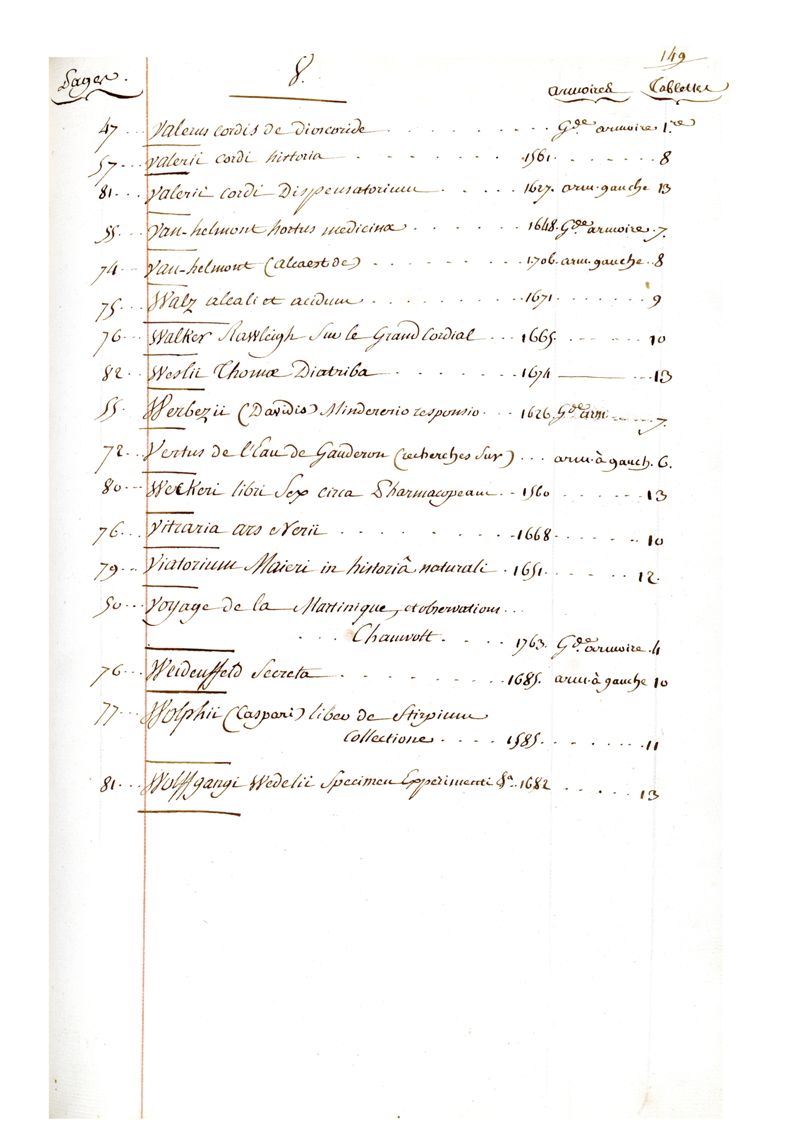 149
Pages. 8. armoires Tablettes
47... Valerus cordis de dioscoride . . . . . . . Gde armoire 1.re
57... Valerii cordi historia - . . . . . . . 1561. . . . . . . 8
81... Valerii cordi Dispensatorium . . . . . 1627. arm. gauche 13
55... Van-helmont hortus medicinæ . . . . . . 1648. Gde armoire . 7.
74... Van-helmont (alcaest de) . . . . . . . 1706. arm. gauche . 8
75... Walz alcali et acidum . . . . . . . . 1671. . . . . . . 9
76... Walker Rawleigh Sur le Grand Cordial . . . 1665. . . . . . 10
82... Weslii Thomæ Diatriba . . . . . . . . 1674 ——— . . . 13
55. Werbezii (Davidis) Mindererio responsio . . . 1626. Gde arm. . . . 7.
72... Vertus de l'Eau de Gauderon (recherches Sur) . . . arm. à gauch. 6.
80... Weckeri libri Sex circa Pharmacopeam . . 1560 . . . . . . . 13
76... Vitraria ars Nerii . . . . . . . . . 1668 . . . . . . 10
79... Viatorium Maieri in historiâ naturali . 1651. . . . . . . 12.
50... Voyage de la Martinique, et observations . . .
. . . Chanvolt . . . . . 1763. Gde armoire . 4
76... Weidenffeld Secreta . . . . . . . . . 1685. arm. à gauche 10
77... Wolphii (Caspari) liber de Stirpium
Collectione . . . . 1585. . . . . . . 11
81... Wolffgangi Wedelii Specimen Experimenti &a. . 1682 . . . . . . 13